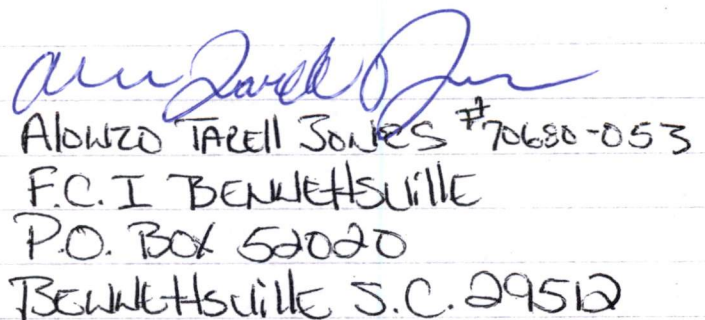 Alonzo Tarell Jones
Alonzo Tarell Jones #70680-053
F.C.I Bennettsville
P.O. Box 52020
Bennettsville S.C. 29512